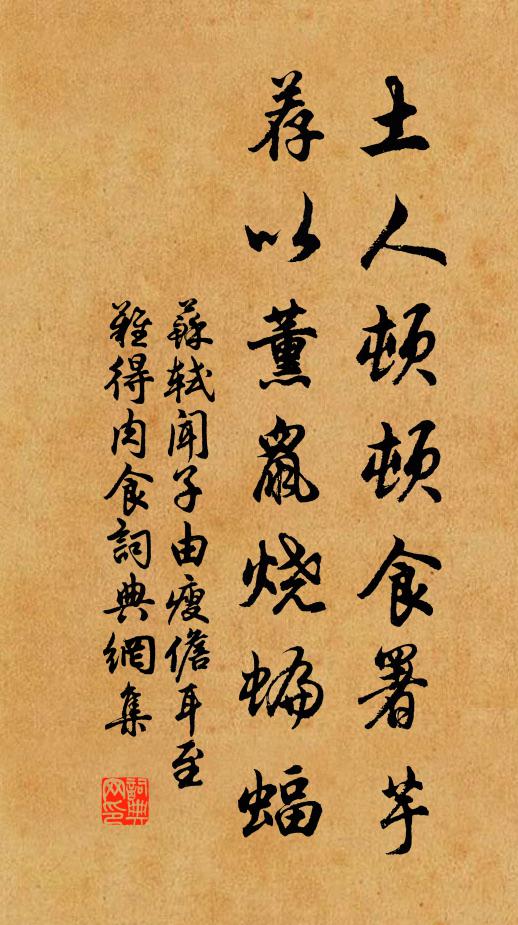 土人頓頓食署芋
荐以薰鼠烧蝙蝠
蘇軾聞子由瘦儋耳至
難得肉食詞典網集
詞典网印